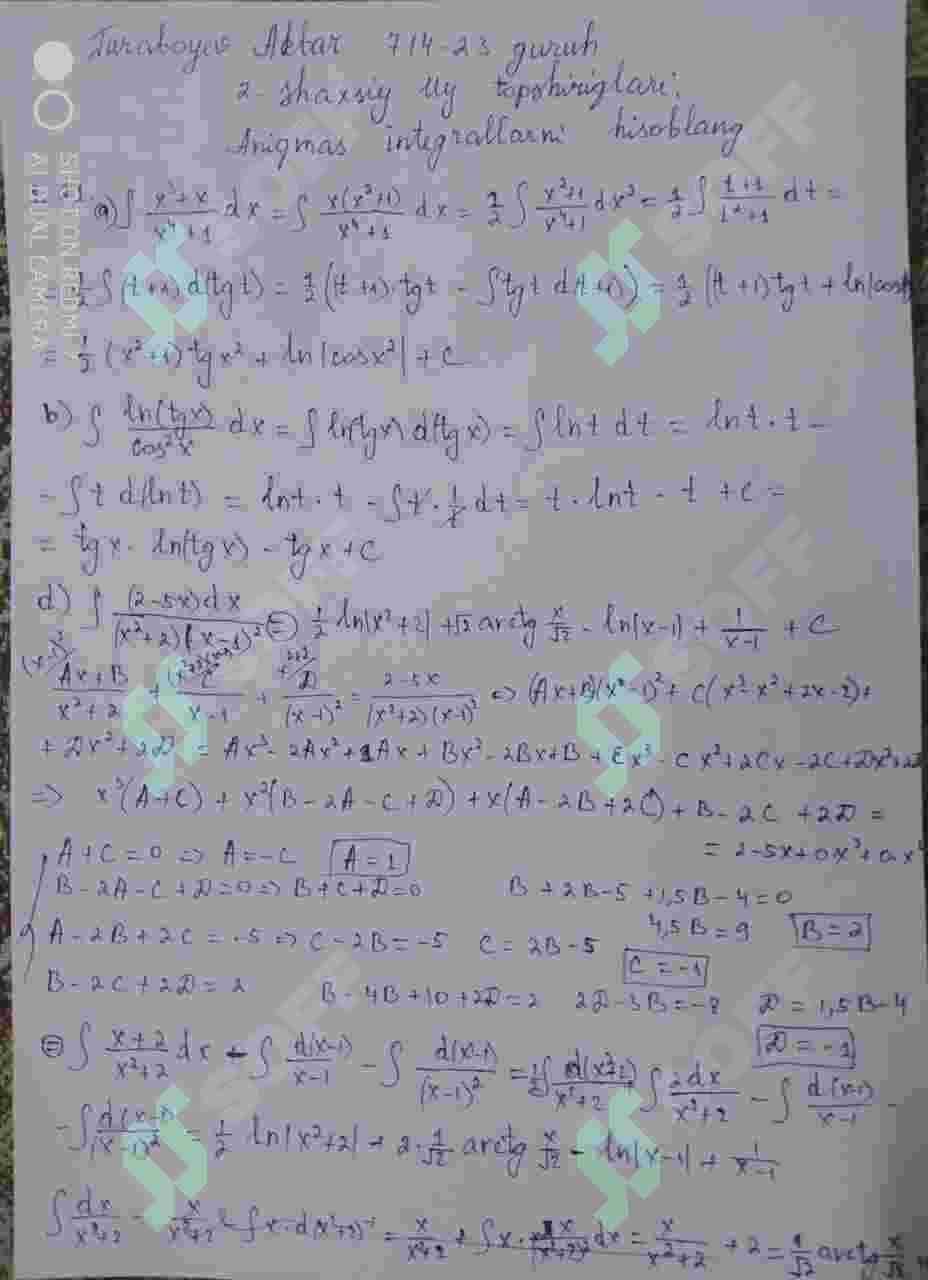 Turaboyev Akbar 714-23 guruh
2-shaxsiy uy topshiriqlari.
Aniqmas integrallarni hisoblang
SHOT ON REDMI 7
AI DUAL CAMERA
SOFF
a) ∫ (x³+x)/(x⁴+1) dx = ∫ x(x²+1)/(x⁴+1) dx = 1/2 ∫ (x²+1)/(x⁴+1) dx² = 1/2 ∫ (t+1)/(t²+1) dt =
= 1/2 ∫ (t+1) d(tg t) = 1/2 (t+1)·tg t - ∫ tg t d(t+1)) = 1/2 (t+1) tg t + ln|cos t|
= 1/2 (x²+1) tg x² + ln|cos x²| + C
b) ∫ ln(tg x)/cos²x dx = ∫ ln(tg x) d(tg x) = ∫ ln t dt = ln t · t -
- ∫ t d(ln t) = ln t · t - ∫ t · 1/t dt = t · ln t - t + C =
= tg x · ln(tg x) - tg x + C
d) ∫ (2-5x)dx/((x²+2)(x-1)²) = 1/2 ln|x²+2| + √2 arctg x/√2 - ln|x-1| + 1/(x-1) + C
(Ax+B)/(x²+2) + C/(x-1) + D/(x-1)² = (2-5x)/((x²+2)(x-1)²) => (Ax+B)(x-1)² + C(x³-x²+2x-2)+
+ Dx²+2D = Ax³-2Ax²+1Ax + Bx²-2Bx+B + Cx³-Cx²+2Cx-2C+Dx²+2D
=> x³(A+C) + x²(B-2A-C+D) + x(A-2B+2C) + B-2C+2D =
= 2-5x+0x³+0x²
A+C=0 => A=-C A=1
B-2A-C+D=0 => B+C+D=0 B+2B-5+1,5B-4=0
4,5B=9 B=2
A-2B+2C=-5 => C-2B=-5 C=2B-5
C=-1
B-2C+2D=2 B-4B+10+2D=2 2D-3B=-8 D=1,5B-4
D=-1
= ∫ (x+2)/(x²+2) dx - ∫ d(x-1)/(x-1) - ∫ d(x-1)/(x-1)² = 1/2 ∫ d(x²+2)/(x²+2) ∫ 2dx/(x²+2) - ∫ d(x-1)/(x-1) -
- ∫ d(x-1)/(x-1)² = 1/2 ln|x²+2| + 2·1/√2 arctg x/√2 - ln|x-1| + 1/(x-1)
∫ dx/(x²+2) = x/(x²+2) - ∫ x·d(x²+2)⁻¹ = x/(x²+2) + ∫ x · dx = x/(x²+2) + 2 = 1/√2 arctg x/√2